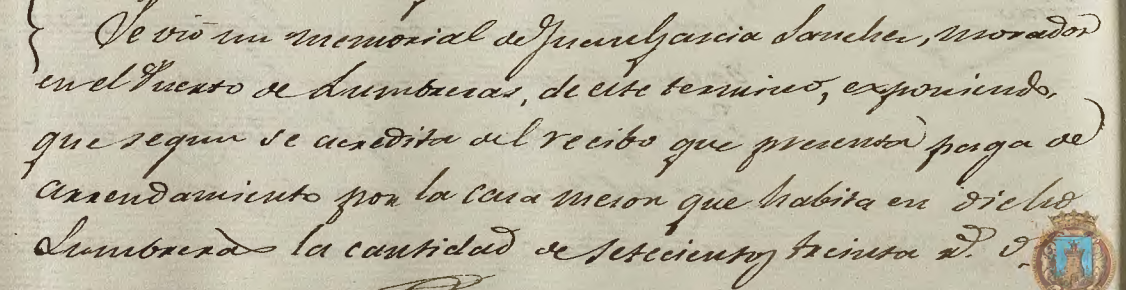 Se vió un memorial de Juan Garcia Sanchez, morador
en el Puerto de Lumbreras, de este termino, exponiendo,
que segun se acredita del recibo que presenta paga de
arrendamiento por la casa meson que habita en dicho
Lumbreras la cantidad de setecientos treinta r.^s v.^n